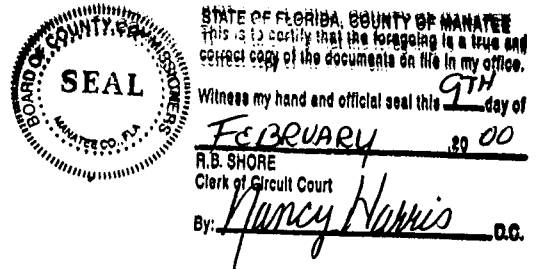 BOARD OF COUNTY COMMISSIONERS
SEAL
MANATEE CO., FLA
STATE OF FLORIDA, COUNTY OF MANATEE
This is to certify that the foregoing is a true and
correct copy of the documents on file in my office.
Witness my hand and official seal this 9TH day of
FEBRUARY ,20 00
R.B. SHORE
Clerk of Circuit Court
By: Nancy Harris D.C.